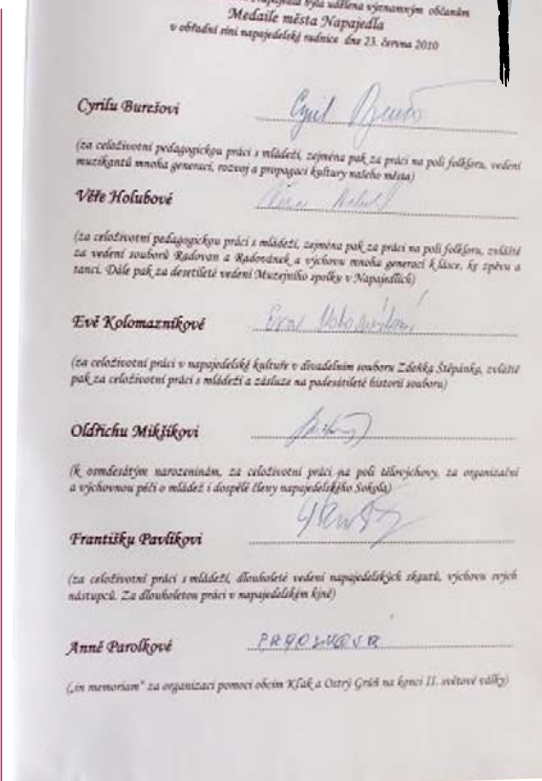 byla udělena významným občanům
Medaile města Napajedla
v obřadní síni napajedelské radnice dne 23. června 2010
Cyrilu Burešovi Cyril Bureš
(za celoživotní pedagogickou práci s mládeží, zejména pak za práci na poli folklóru, vedení
muzikantů mnoha generací, rozvoj a propagaci kultury našeho města)
Věře Holubové
(za celoživotní pedagogickou práci s mládeží, zejména pak za práci na poli folklóru, zvláště
za vedení souborů Radovan a Radovánek a výchovu mnoha generací k lásce, ke zpěvu a
tanci. Dále pak za desetileté vedení Muzejního spolku v Napajedlích)
Evě Kolomazníkové Eva
(za celoživotní práci v napajedelské kultuře v divadelním souboru Zdeňka Štěpánka, zvláště
pak za celoživotní práci s mládeží a zásluze na padesátileté historii souboru)
Oldřichu Mikšíkovi
(k osmdesátým narozeninám, za celoživotní práci na poli tělovýchovy, za organizační
a výchovnou péči o mládež i dospělé členy napajedelského Sokola)
Františku Pavlíkovi
(za celoživotní práci s mládeží, dlouholeté vedení napajedelských skautů, výchovu svých
nástupců. Za dlouholetou práci v napajedelském kině)
Anně Parolkové
(„in memoriam" za organizaci pomoci obcím Kľak a Ostrý Grúň na konci II. světové války)